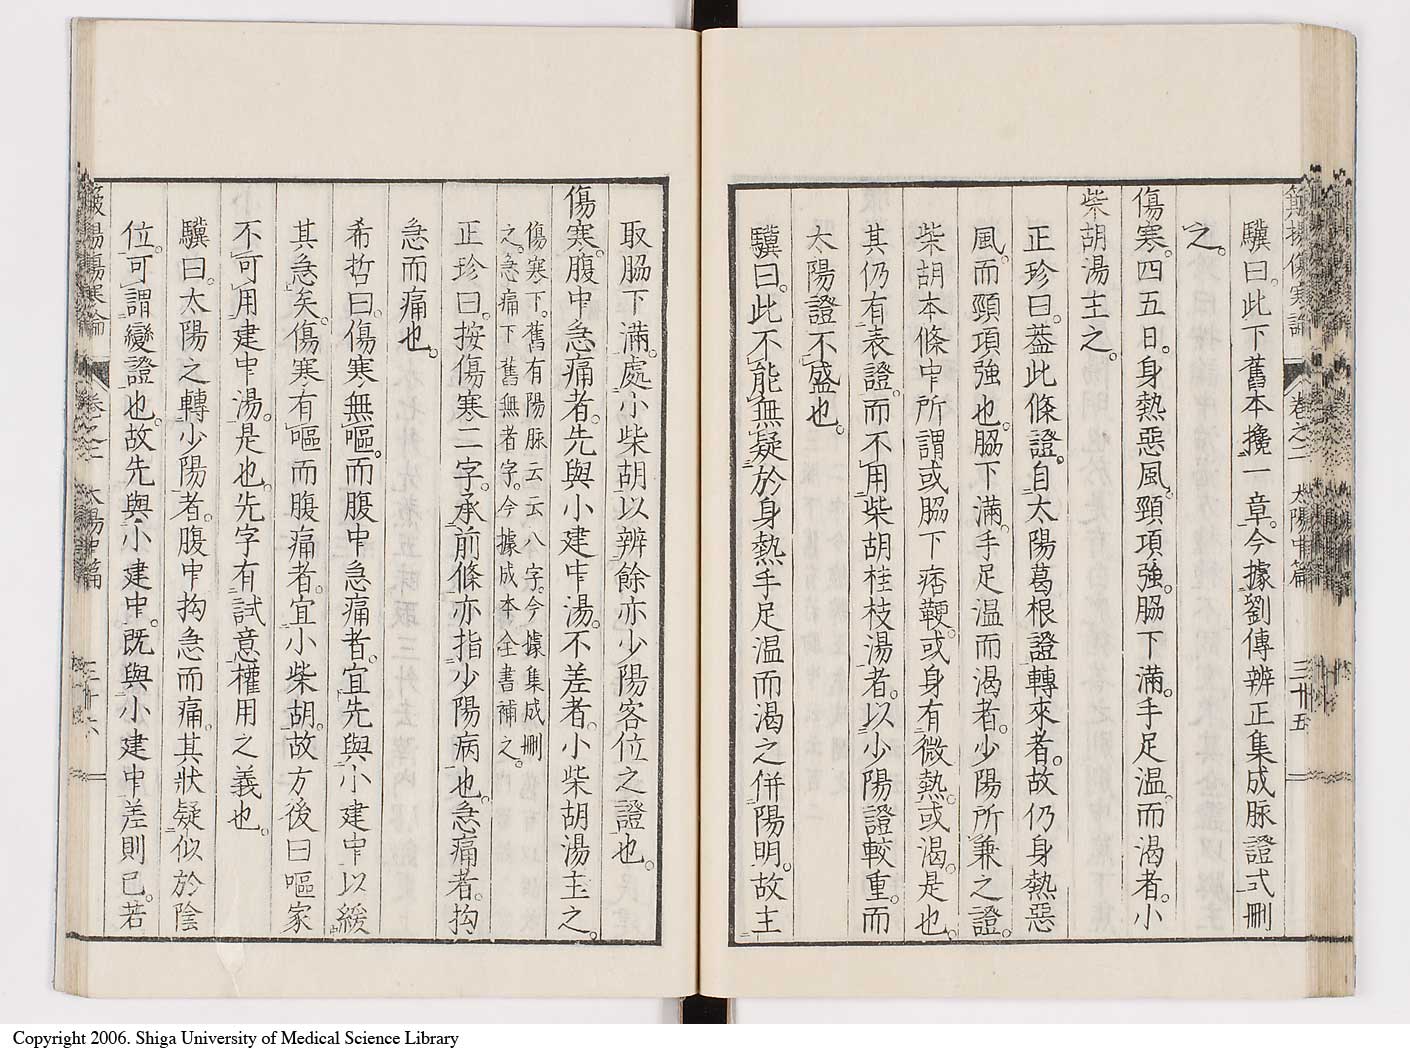 驥曰。此下舊本攙一章。今據劉傳辨正集成脉證式刪
之。
傷寒。四五日。身熱惡風。頸項強。脇下滿。手足溫。而渴者。小
柴胡湯主之。
正珍曰。蓋此條證。自太陽葛根證轉來者。故仍身熱惡
風。而頸項強也。脇下滿。手足溫而渴者。少陽所兼之證。
柴胡本條中所謂或脇下痞鞕。或身有微熱。或渴。是也
其仍有表證。而不用柴胡桂枝湯者。以少陽證較重。而
太陽證不盛也。
驥曰。此不能無疑於身熱手足溫而渴之併陽明。故主
取脇下滿。處小柴胡以辨餘亦少陽客位之證也。
傷寒。腹中急痛者。先與小建中湯。不差者。小柴胡湯主之。
傷寒下。舊有陽脉云云八字。今據集成刪
之。急痛下舊無者字。今據成本全書補之。
正珍曰。按傷寒二字。承前條。亦指少陽病也。急痛者。拘
急而痛也。
希哲曰。傷寒無嘔。而腹中急痛者。宜先與小建中以緩
其急矣。傷寒有嘔而腹痛者。宜小柴胡。故方後曰嘔家
不可用建中湯。是也。先字有試意權用之義也。
驥曰。太陽之轉少陽者。腹中拘急而痛。其狀疑似於陰
位。可謂變證也。故先與小建中。既與小建中差則已。若
卷之二 太陽中篇 三十五